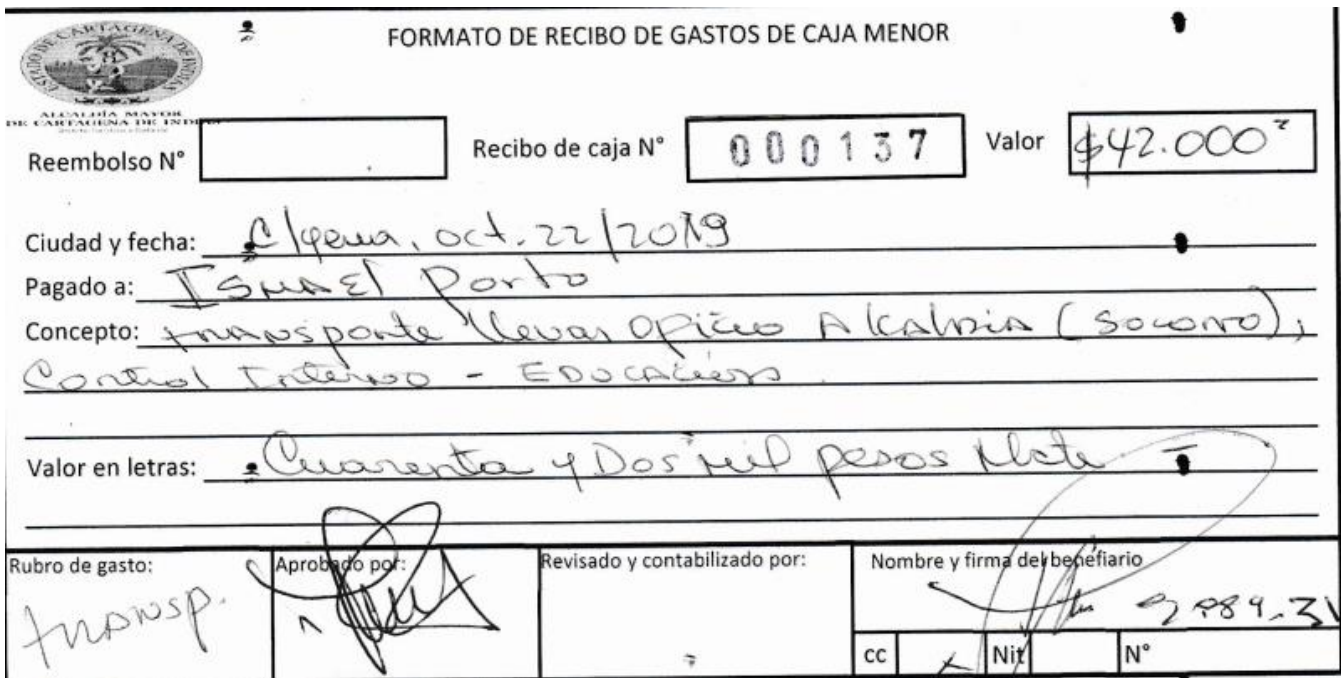 FORMATO DE RECIBO DE GASTOS DE CAJA MENOR
ALCALDÍA MAYOR
DE CARTAGENA DE INDIAS
Reembolso N° Recibo de caja N° 000137 Valor $42.000
Ciudad y fecha: C/gena, oct. 22/2019
Pagado a: ISMAEl Porto
Concepto: transporte llevar Oficio Alcaldia (Socorro),
Control Interno - EDUCACIÓN
Valor en letras: Cuarenta y Dos mil pesos Mcte
Rubro de gasto: Aprobado por: Revisado y contabilizado por: Nombre y firma del benefiario
transp.
cc Nit N°